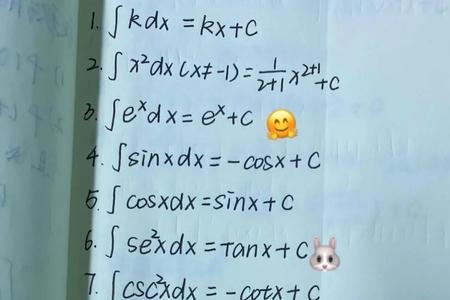 1. ∫kdx = kx+C
2. ∫x²dx(x≠-1)=1/(2+1) x²⁺¹+C
3. ∫eˣdx= eˣ+C
4. ∫sinxdx=-cosx+C
5. ∫cosxdx=sinx+C
6. ∫se²xdx=Tanx+C
7. ∫csc²xdx= -cotx+C